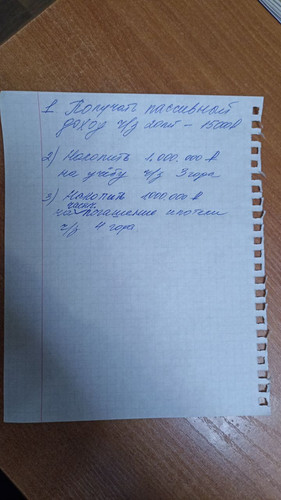 1. Получать пассивный
доход ч/з 20лет – 15000₽
2) Накопить 1.000.000 ₽
на учёбу ч/з 3 года
3) Накопить 1000.000 ₽
част.
погашение ипотеки
ч/з 4 года